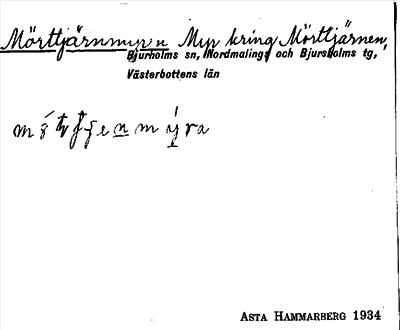 Mörttjärnmyrn Myr kring Mörttjärnen,
Bjurholms sn, Nordmalings och Bjurholms tg,
Västerbottens län
ASTA HAMMARBERG 1934